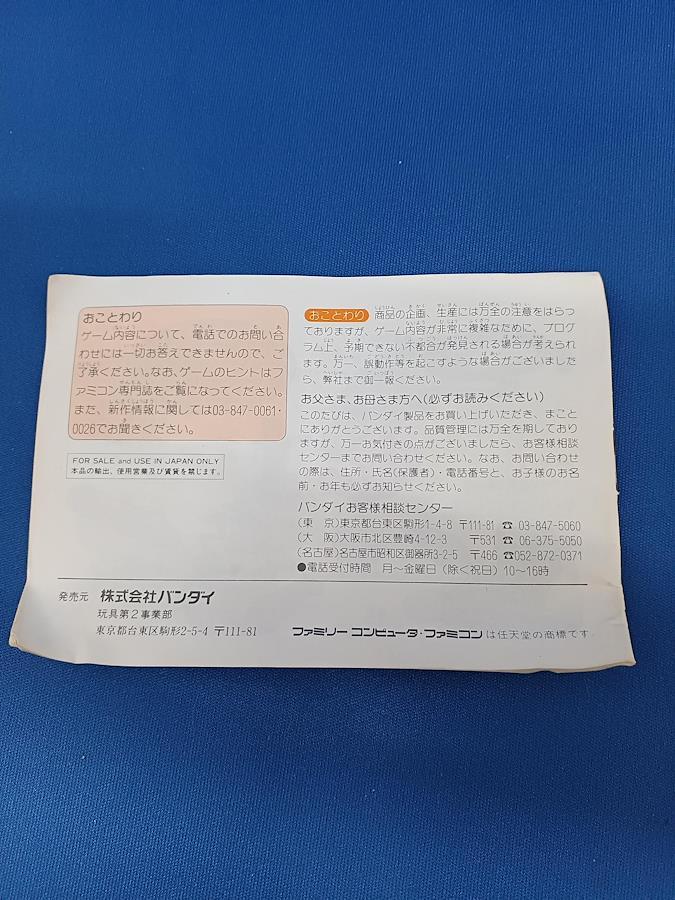 おことわり
ゲーム内容について、電話でのお問い合
わせには一切お答えできませんので、ご
了承ください。なお、ゲームのヒントはフ
ァミコン専門誌をご覧になってください。
また、新作情報に関しては03-847-0061・
0026でお聞きください。
FOR SALE and USE IN JAPAN ONLY
本品の輸出、使用営業及び賃貸を禁じます。
おことわり 商品の企画、生産には万全の注意をはらっ
ておりますが、ゲーム内容が非常に複雑なために、プログ
ラム上、予期できない不都合が発見される場合が考えられ
ます。万一、誤動作等を起こすような場合がございました
ら、弊社まで御一報ください。
お父さま、お母さま方へ(必ずお読みください)
このたびは、バンダイ製品をお買い上げいただき、まこと
にありがとうございます。品質管理には万全を期しており
ますが、万一お気付きの点がございましたら、お客様相談
センターまでお問い合わせください。なお、お問い合わせ
の際は、住所・氏名(保護者)・電話番号と、お子様のお名
前・お年も必ずお知らせください。
バンダイお客様相談センター
(東 京)東京都台東区駒形1-4-8 〒111-81 ☎ 03-847-5060
(大 阪)大阪市北区豊崎4-12-3 〒531 ☎ 06-375-5050
(名古屋)名古屋市昭和区御器所3-2-5 〒466 ☎052-872-0371
●電話受付時間 月~金曜日(除く祝日)10~16時
発売元 株式会社バンダイ
玩具第2事業部
東京都台東区駒形2-5-4 〒111-81
ファミリーコンピュータ・ファミコンは任天堂の商標です